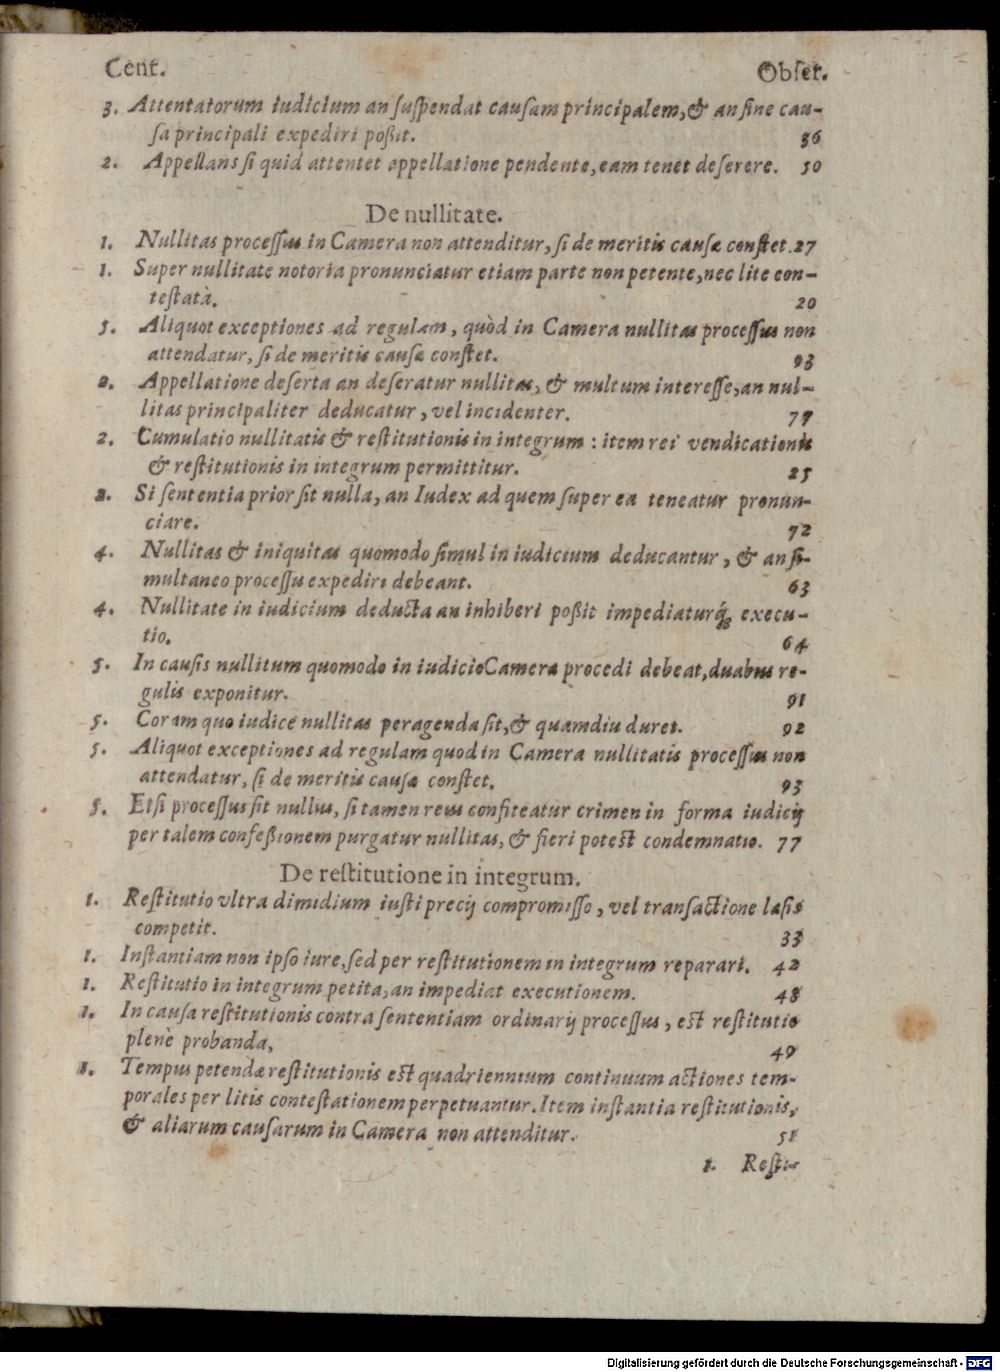 Cent. Obser.
3. Attentatorum iudicium an suspendat causam principalem, & an sine cau-
sa principali expediri poßit. 36
2. Appellans si quid attentet appellatione pendente, eam tenet deserere. 50
De nullitate.
1. Nullitas processus in Camera non attenditur, si de meritis causæ constet. 27
1. Super nullitate notoria pronunciatur etiam parte non petente, nec lite con-
testatà. 20
5. Aliquot exceptiones ad regulam, quòd in Camera nullitas processus non
attendatur, si de meritis causæ constet. 93
2. Appellatione deserta an deseratur nullitas, & multum interesse, an nul-
litas principaliter deducatur, vel incidenter. 77
2. Cumulatio nullitatis & restitutionis in integrum : item rei vendicationis
& restitutionis in integrum permittitur. 25
2. Si sententia prior sit nulla, an Iudex ad quem super ea teneatur pronun-
ciare. 72
4. Nullitas & iniquitas quomodo simul in iudicium deducantur, & an si-
multaneo processu expediri debeant. 63
4. Nullitate in iudicium deducta an inhiberi poßit impediaturq́ue execu-
tio. 64
5. In causis nullitum quomodo in iudicio Camera procedi debeat, duabus re-
gulis exponitur. 91
5. Coram quo iudice nullitas peragenda sit, & quamdiu duret. 92
5. Aliquot exceptiones ad regulam quod in Camera nullitatis processus non
attendatur, si de meritis causæ constet. 93
5. Etsi processus sit nullus, si tamen reus confiteatur crimen in forma iudicij
per talem confeßionem purgatur nullitas, & fieri potest condemnatio. 77
De restitutione in integrum.
1. Restitutio vltra dimidium iusti precij compromisso, vel transactione læsis
competit. 33
1. Instantiam non ipso iure, sed per restitutionem in integrum reparari. 42
1. Restitutio in integrum petita, an impediat executionem. 48
1. In causa restitutionis contra sententiam ordinarij processus, est restitutio
plenè probanda, 49
1. Tempus petendæ restitutionis est quadriennium continuum actiones tem-
porales per litis contestationem perpetuantur. Item instantia restitutionis,
& aliarum causarum in Camera non attenditur. 51
1. Restitu-
Digitalisierung gefördert durch die Deutsche Forschungsgemeinschaft - DFG